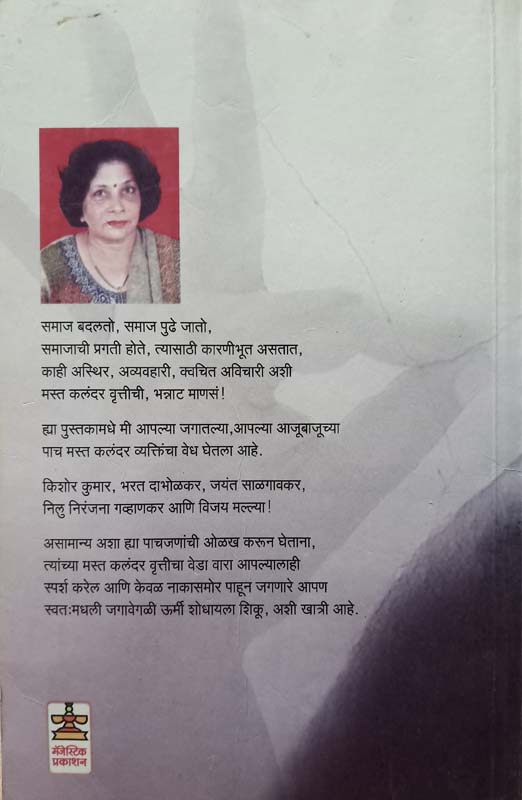 समाज बदलतो, समाज पुढे जातो,
समाजाची प्रगती होते, त्यासाठी कारणीभूत असतात,
काही अस्थिर, अव्यवहारी, क्वचित अविचारी अशी
मस्त कलंदर वृत्तीची, भन्नाट माणसं!
ह्या पुस्तकामधे मी आपल्या जगातल्या,आपल्या आजूबाजूच्या
पाच मस्त कलंदर व्यक्तिंचा वेध घेतला आहे.
किशोर कुमार, भरत दाभोळकर, जयंत साळगावकर,
निलु निरंजना गव्हाणकर आणि विजय मल्ल्या!
असामान्य अशा ह्या पाचजणांची ओळख करून घेताना,
त्यांच्या मस्त कलंदर वृत्तीचा वेडा वारा आपल्यालाही
स्पर्श करेल आणि केवळ नाकासमोर पाहून जगणारे आपण
स्वतःमधली जगावेगळी ऊर्मी शोधायला शिकू, अशी खात्री आहे.
मॅजेस्टिक
प्रकाशन